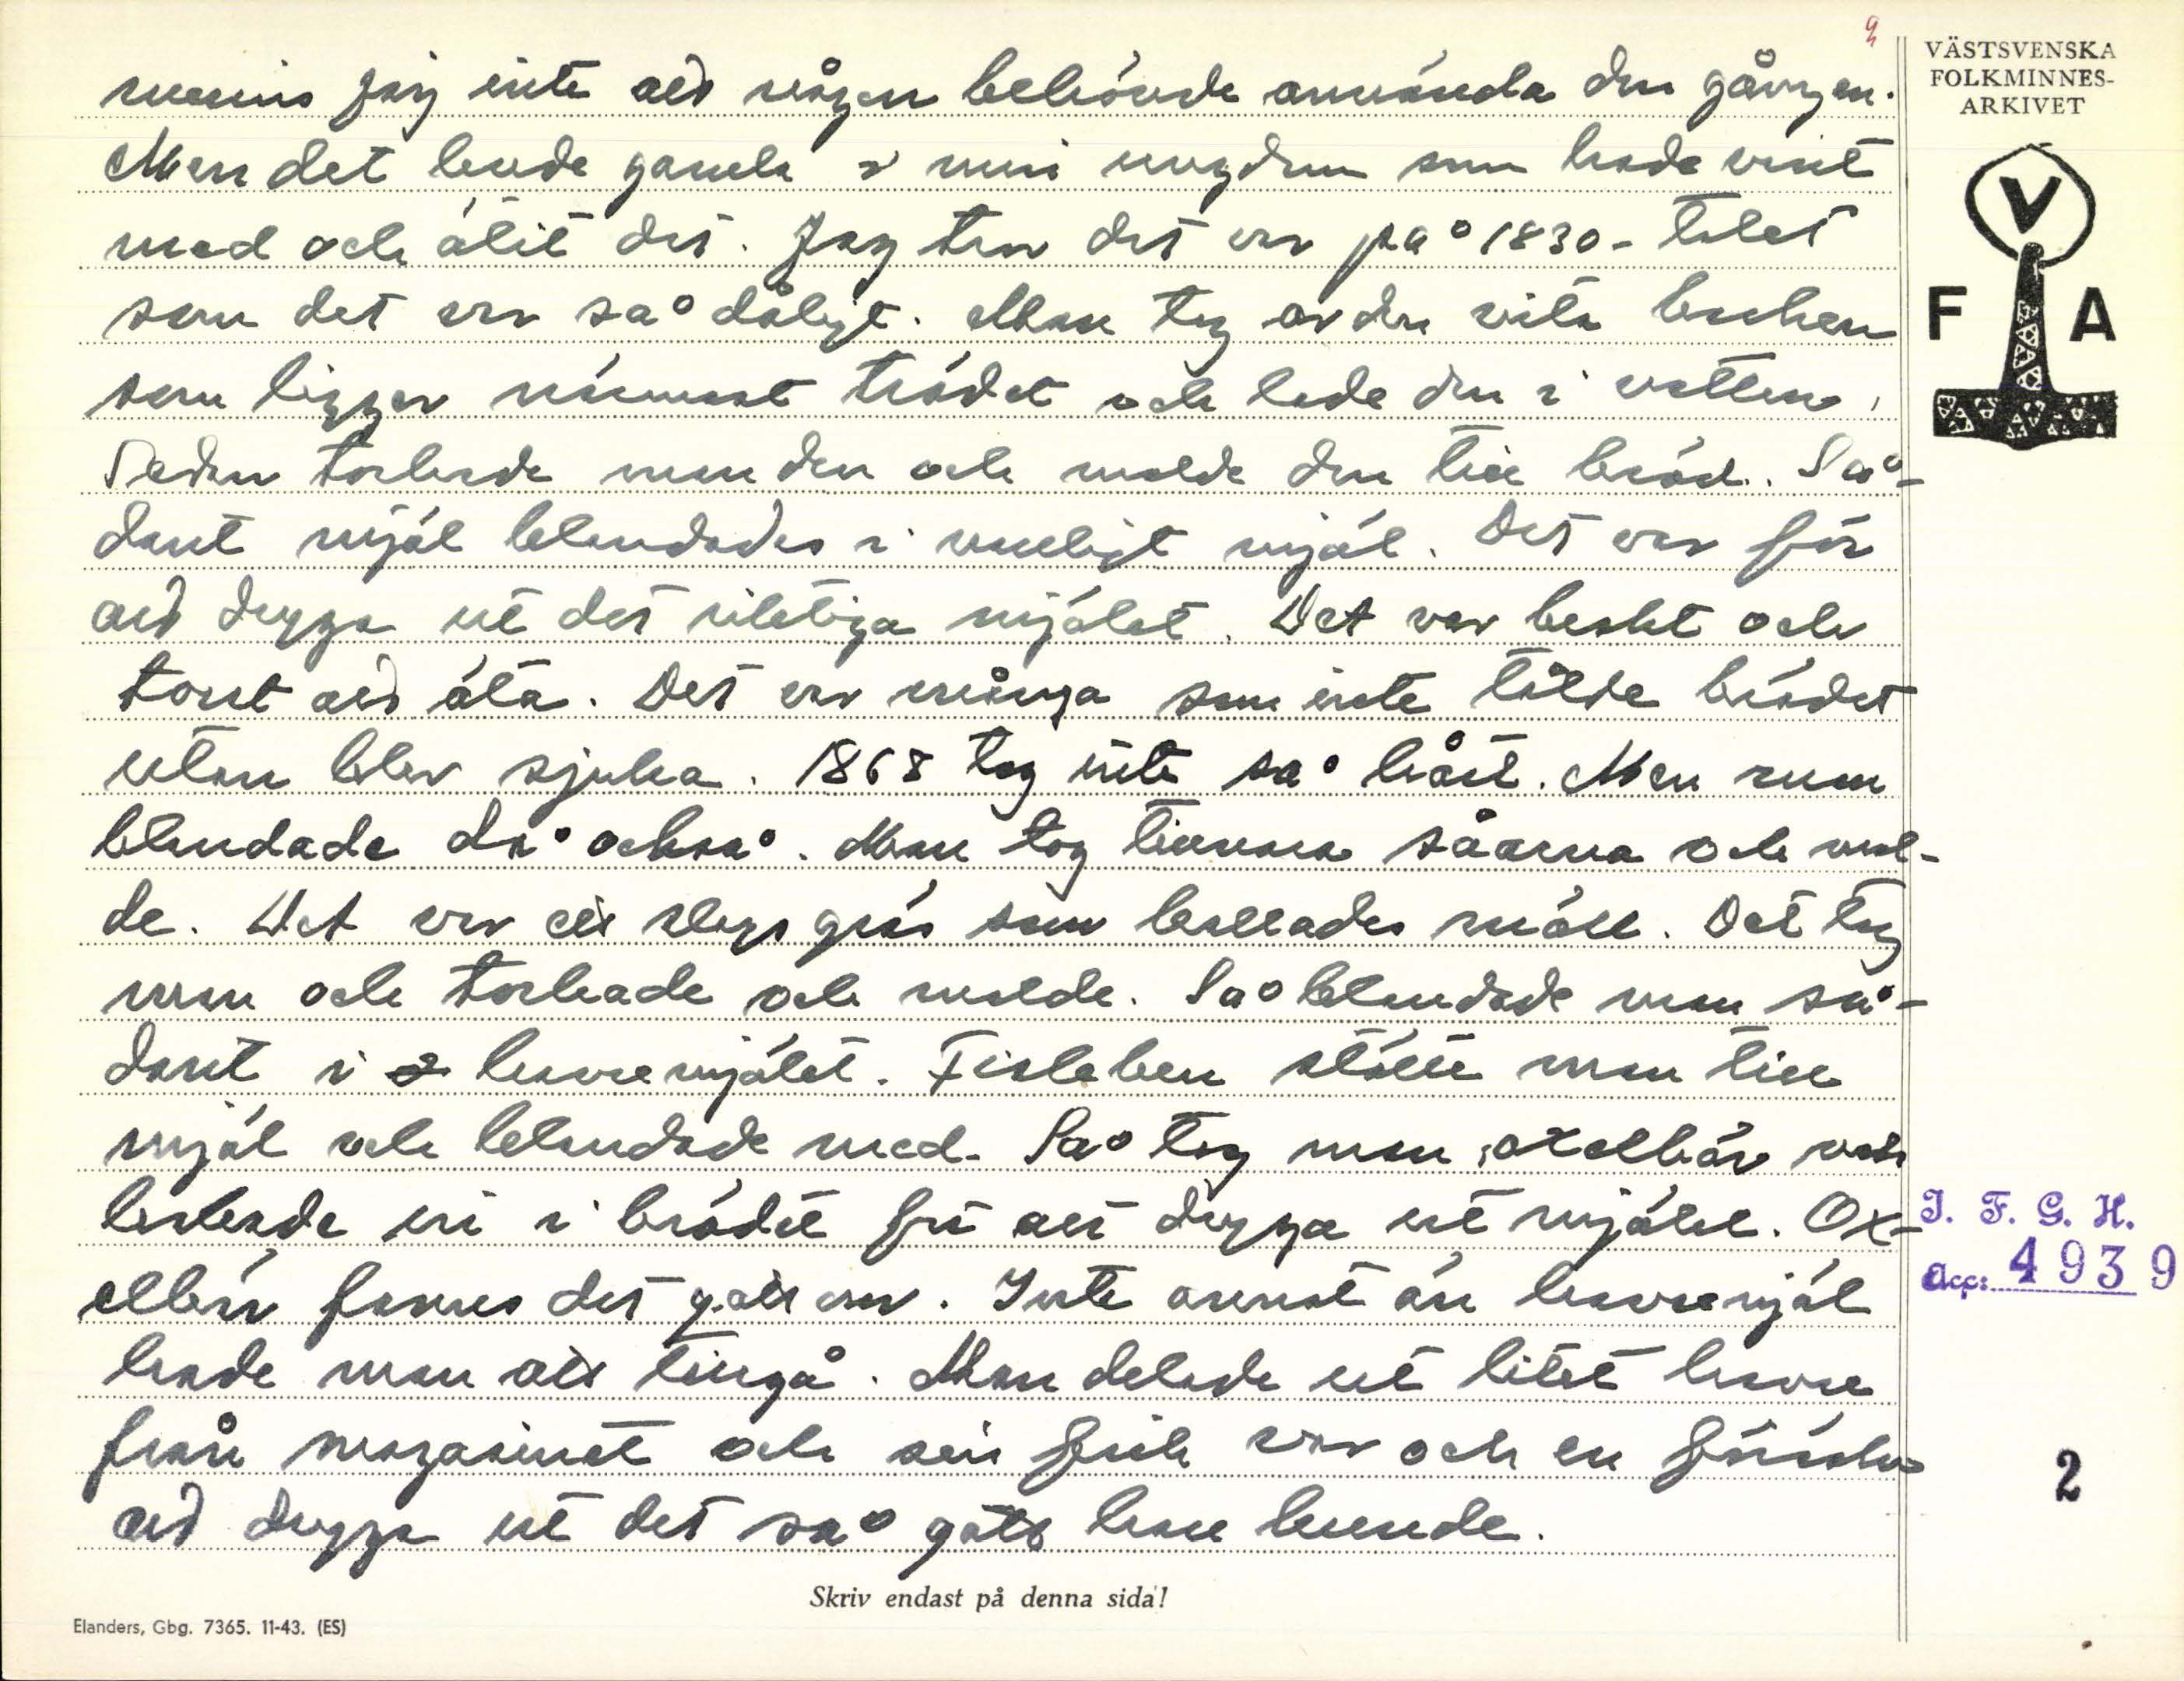 9
minns jag inte att någon behövde använda den gången.
Men det levde gamla i min ungdom som hade varit
med och ätit det. Jag tror det var på 1830-talet
som det var så dåligt. Man tog av den vita barken
som ligger närmast trädet och lade den i vatten,
Sedan torkade man den och malde den till bröd. Så-
dant mjöl blandades i vanligt mjöl. Det var för
att dryga ut det riktiga mjölet. Det var beskt och
torrt att äta. Det var många som inte tålde brödet
utan blev sjuka. 1868 tog inte så hårt. Men man
blandade då också. Man tog särna och mal-
de. Det var ett slags gräs som kallades mäll. Det tog
man och torkade och malde. Så blandade man så-
dant i havremjölet. Fiskben stötte man till
mjöl och blandade med. Så tog man oxelbär och
bakade in i brödet för att dryga ut mjölet. Ox-
elbär fanns det gott om. Inte annat än havremjöl
hade man att tillgå. Man delade ut litet havre
från magasinet och sen fick var och en försöka
att dryga ut det så gott han kunde.
Skriv endast på denna sida!
Elanders, Gbg. 7365. 11-43. (ES)
VÄSTSVENSKA
FOLKMINNES-
ARKIVET
V
F A
I. F. G. H.
Acc: 4939
2